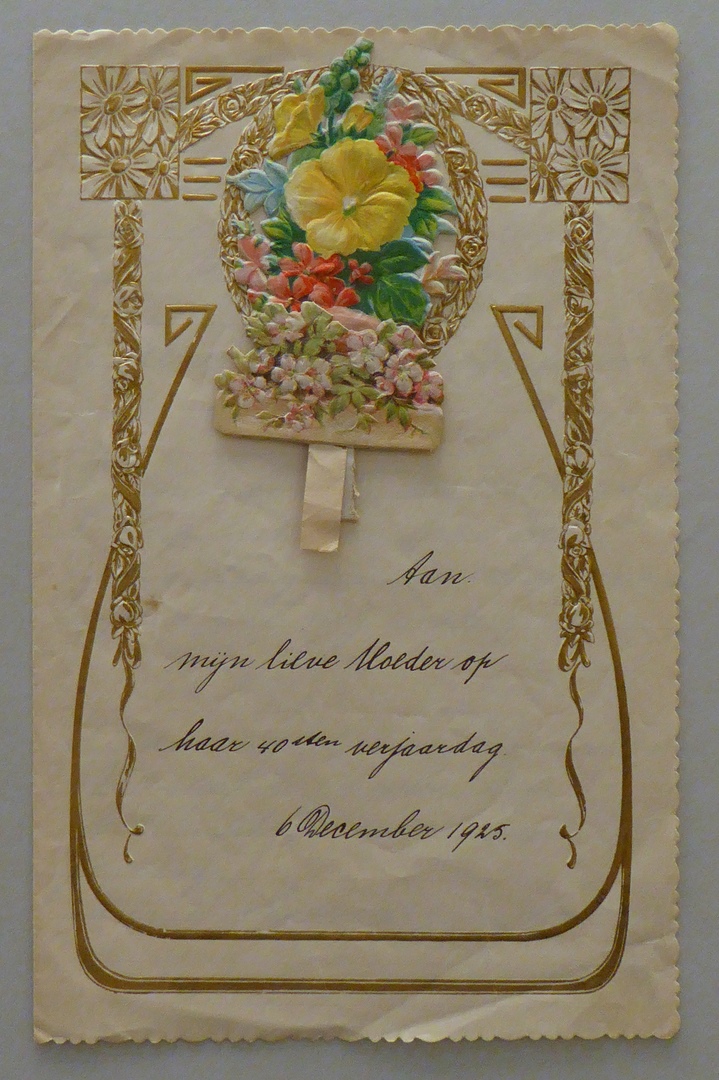 Aan.
mijn lieve Moeder op
haar 40sten verjaardag
6 December 1925.